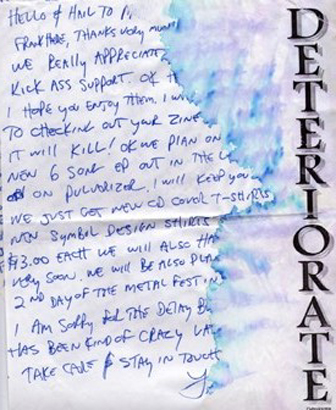 HELLO & HAIL TO
FRANK HERE, THANKS VERY MUCH
WE REALLY APPRECIATE
KICK ASS SUPPORT. OK
I HOPE YOU ENJOY THEM. I
TO CHECKING OUT YOUR ZINE
IT WILL KILL! OK WE PLAN ON
NEW 6 SONG EP OUT IN THE
ON PULVERIZER. I WILL KEEP YOU
WE JUST GET NEW CD COVER T-SHIRTS
NEW SYMBOL DESIGN SHIRTS
$13.00 EACH WE WILL ALSO HA
VERY SOON. WE WILL BE ALSO PLA
2ND DAY OF THE METAL FEST IN
I AM SORRY FOR THE DELAY B
HAS BEEN KIND OF CRAZY LA
TAKE CARE & STAY IN TOUCH
DETERIORATE